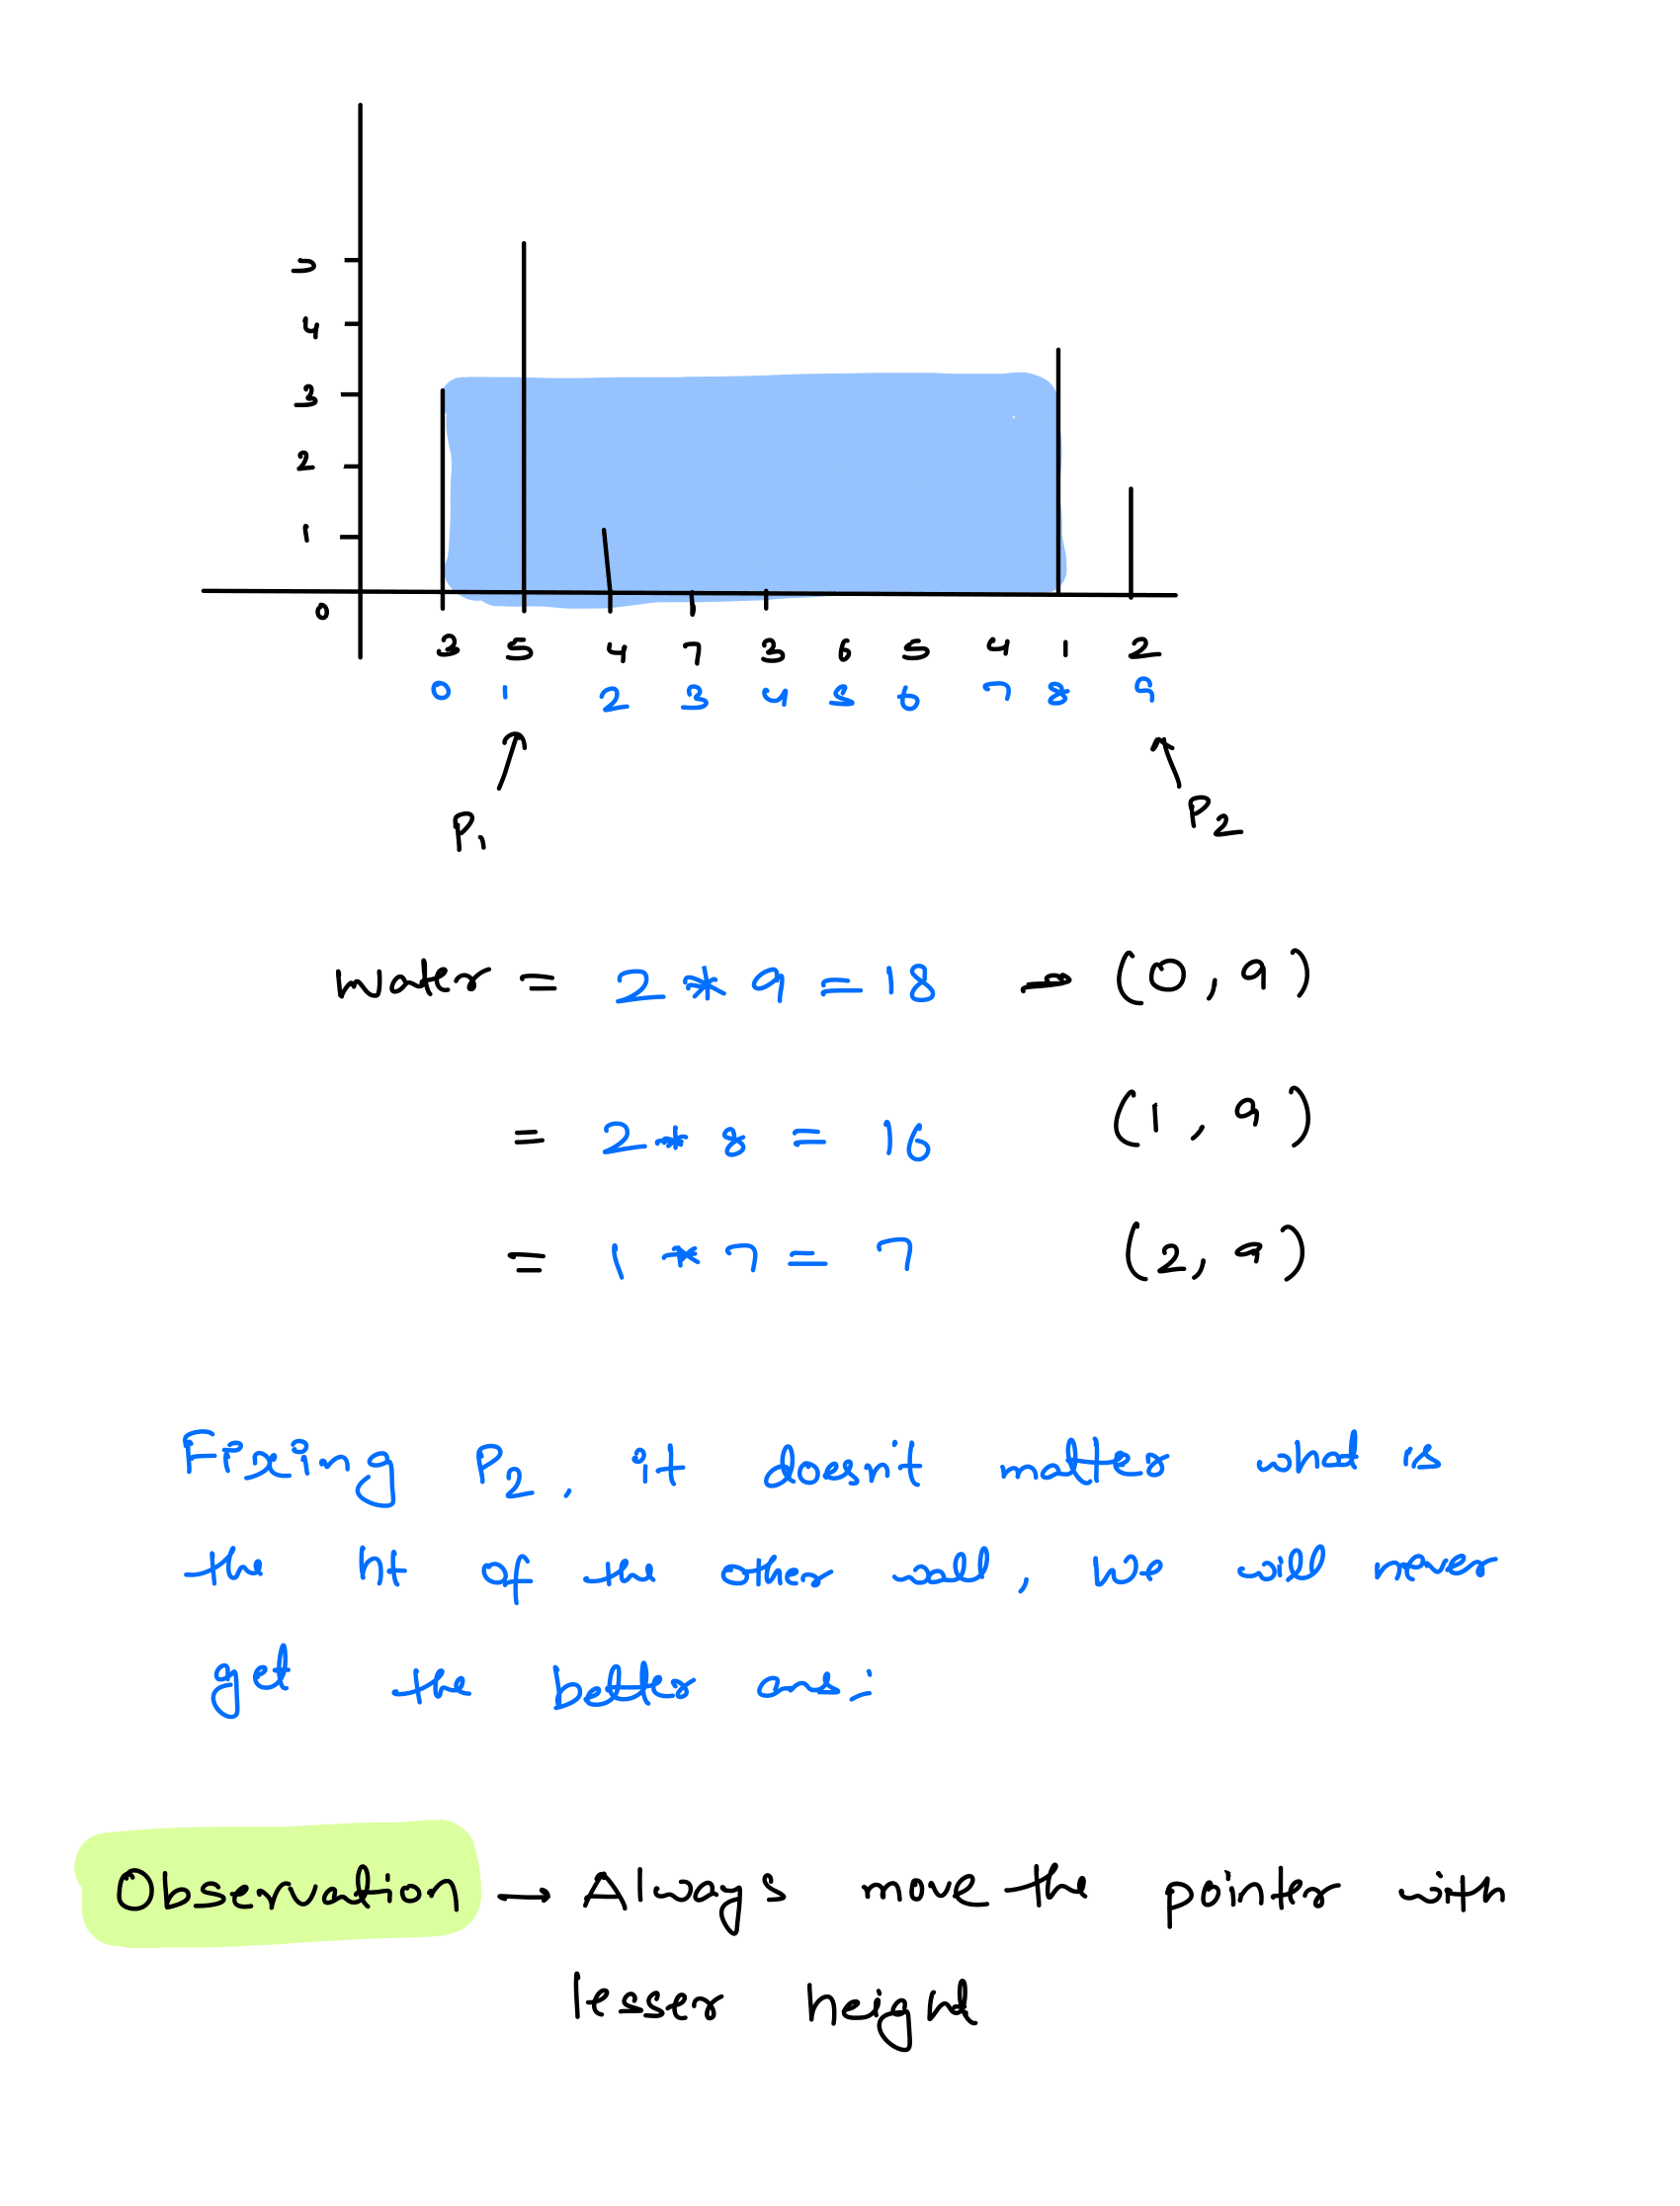 5
4
3
2
1
0
3 5 4 7 3 6 5 4 1 2
0 1 2 3 4 5 6 7 8 9
P1 P2
water = 2 * 9 = 18 → (0, 9)
= 2 * 8 = 16 (1, 9)
= 1 * 7 = 7 (2, 9)
Fixing P2, it doesn't matter what is
the ht of the other wall, we will never
get the better ans.
Observation → Always move the pointer with
lesser height